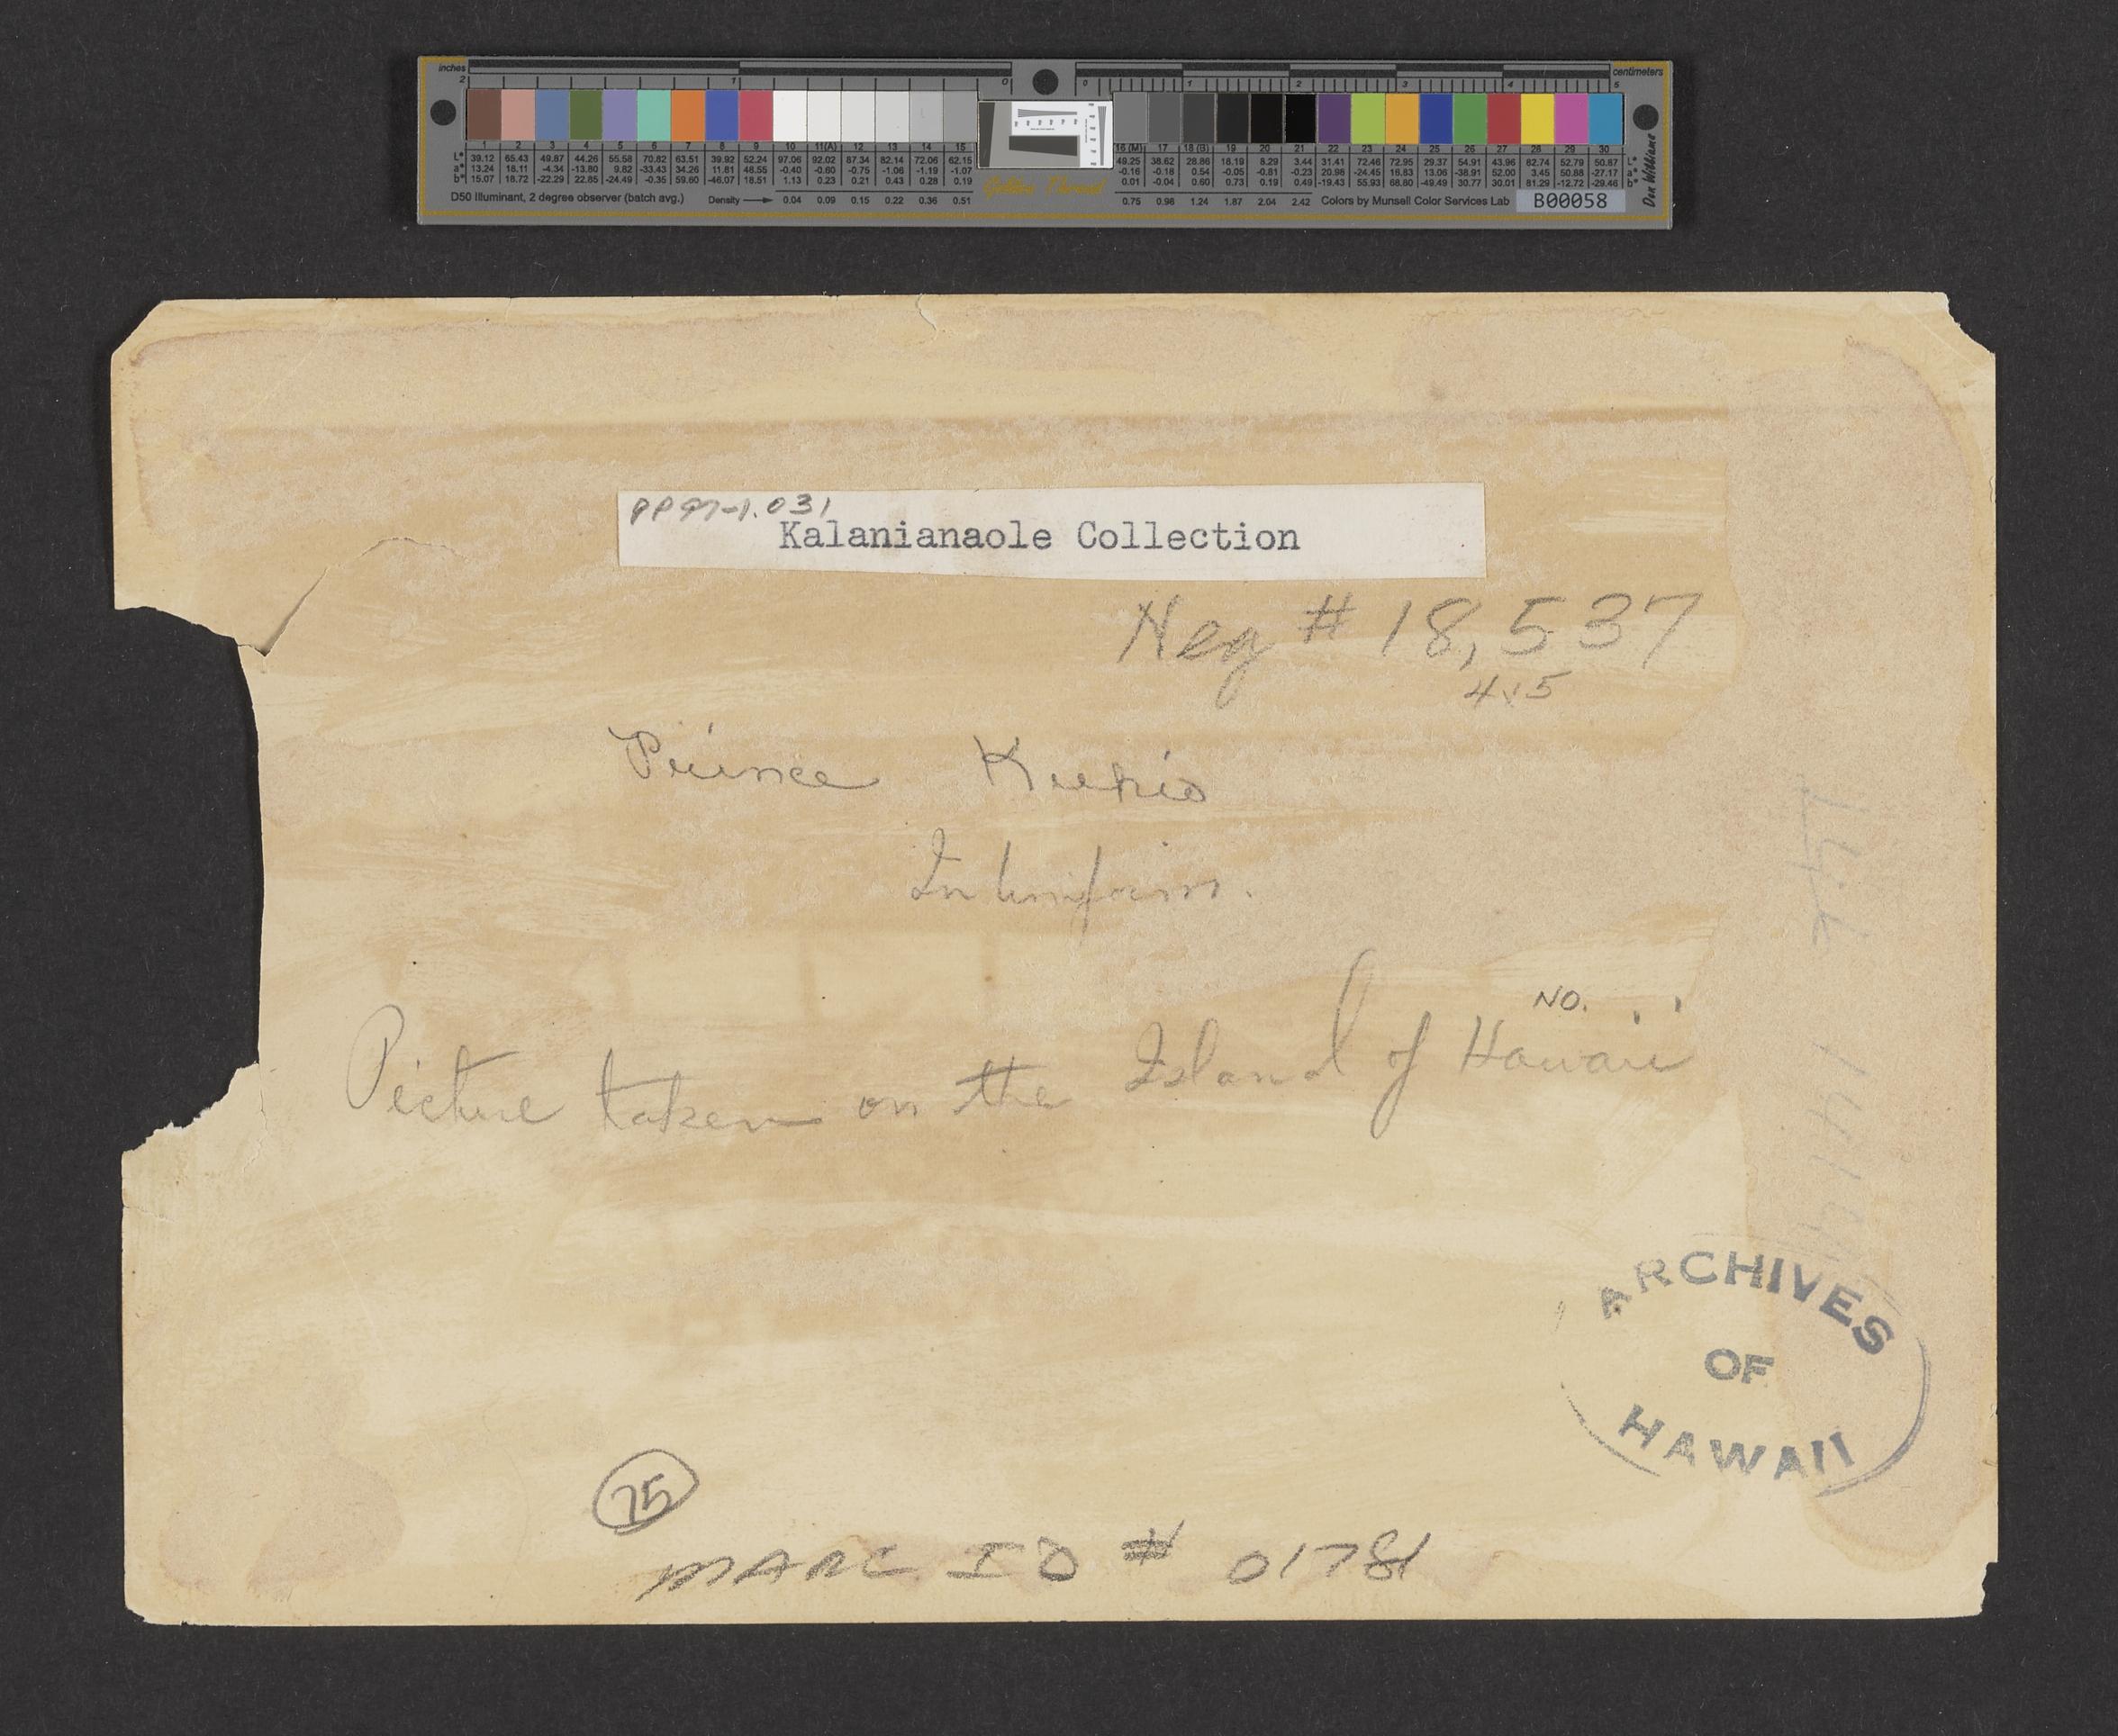 inches centimeters
2 1 0 0 1 2 3 4 5
1 2 3 4 5 6 7 8 9 10 11(A) 12 13 14 15 16 (M) 17 18 (B) 19 20 21 22 23 24 25 26 27 28 29 30
L* 39.12 65.43 49.87 44.26 55.56 70.82 63.51 39.92 52.24 97.06 92.02 87.34 82.14 72.06 62.15 49.25 38.62 28.86 18.19 8.29 3.44 31.41 72.46 72.95 29.37 54.91 43.96 82.74 52.79 50.87 L*
a* 13.24 18.11 -4.34 -13.80 9.82 -33.43 34.26 11.81 48.55 -0.40 -0.60 -0.75 -1.06 -1.19 -1.07 -0.16 -0.18 0.54 -0.05 -0.81 -0.23 20.98 -24.45 16.83 13.06 -38.91 52.00 3.45 50.88 -27.17 a*
b* 15.07 18.72 -22.29 22.85 -24.49 -0.35 59.60 -46.07 18.51 1.13 0.23 0.21 0.43 0.28 0.19 0.01 -0.04 0.60 0.73 0.19 0.49 -19.43 55.93 68.80 -49.49 30.77 30.01 81.29 -12.72 -29.46 b*
D50 Illuminant, 2 degree observer (batch avg.) Density 0.04 0.09 0.15 0.22 0.36 0.51 Golden Thread 0.75 0.98 1.24 1.87 2.04 2.42 Colors by Munsell Color Services Lab B00058
Don Williams
PP97-1.031
Kalanianaole Collection
Neg # 18,537
4x5
Prince Kuhio
In Uniform.
NO.
Picture taken on the Island of Hawaii
ARCHIVES
OF
HAWAII
75
MARC ID # 01781